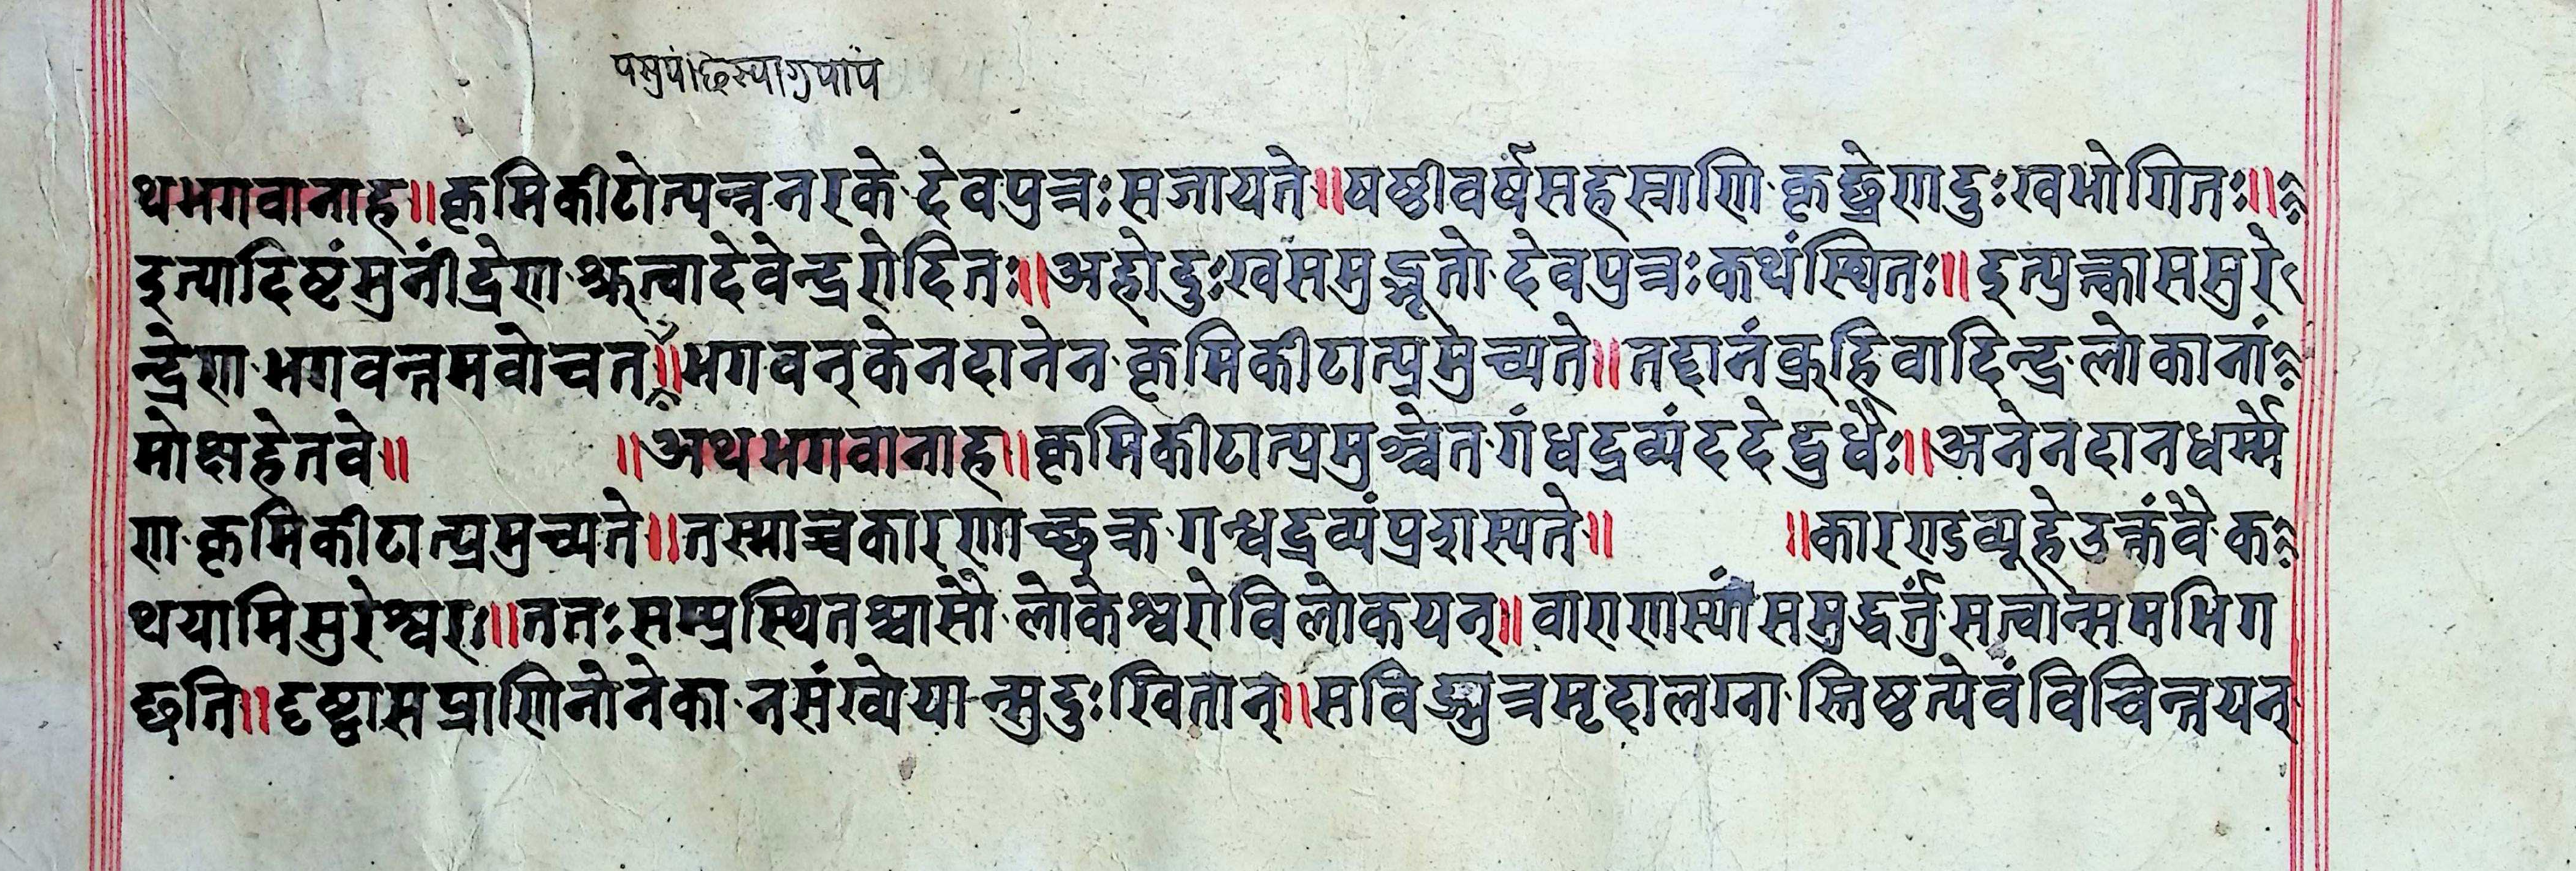 थभगवानाह॥कृमिकीटोत्पन्ननरके देवपुत्रःसजायते॥षष्ठीवर्षसहस्राणि कृछ्रेणदुःखभोगितः॥
इत्यादिष्टंमुनींद्रेण श्रुत्वादेवेन्द्ररोदितः॥अहोदुःखसमुद्भूतो देवपुत्रःकथंस्थितः॥इत्युत्कासमुरे
न्द्रेण भगवन्तमवोचत्॥भगवन्केनदानेन कृमिकीटात्प्रमुच्यते॥तद्दानंब्रूहिवादिन्द्र लोकानां
मोक्षहेतवे॥ ॥अथभगवानाह॥कृमिकीटात्प्रमुञ्चेत गंधद्रव्यंददेद्बुधैः॥अनेनदानधर्म्मे
ण कृमिकीटात्प्रमुच्यते॥तस्माच्चकारणाच्छक्र गन्धद्रव्यंप्रदास्यते॥ ॥कारण्डव्यूहेउक्तंवै क
थयामिसुरेश्वरः॥ततःसम्प्रस्थितश्चासौ लोकेश्वरोविलोकयन्॥वाराणास्यांसमुद्धर्त्तुंसत्वान्समभिग
छति॥दृष्ट्वासप्राणिनोनेका नसंख्येयान्सुदुःखितान्॥सविण्मुत्रमृदालग्ना स्तिष्ठत्येवंविचिन्तयन्